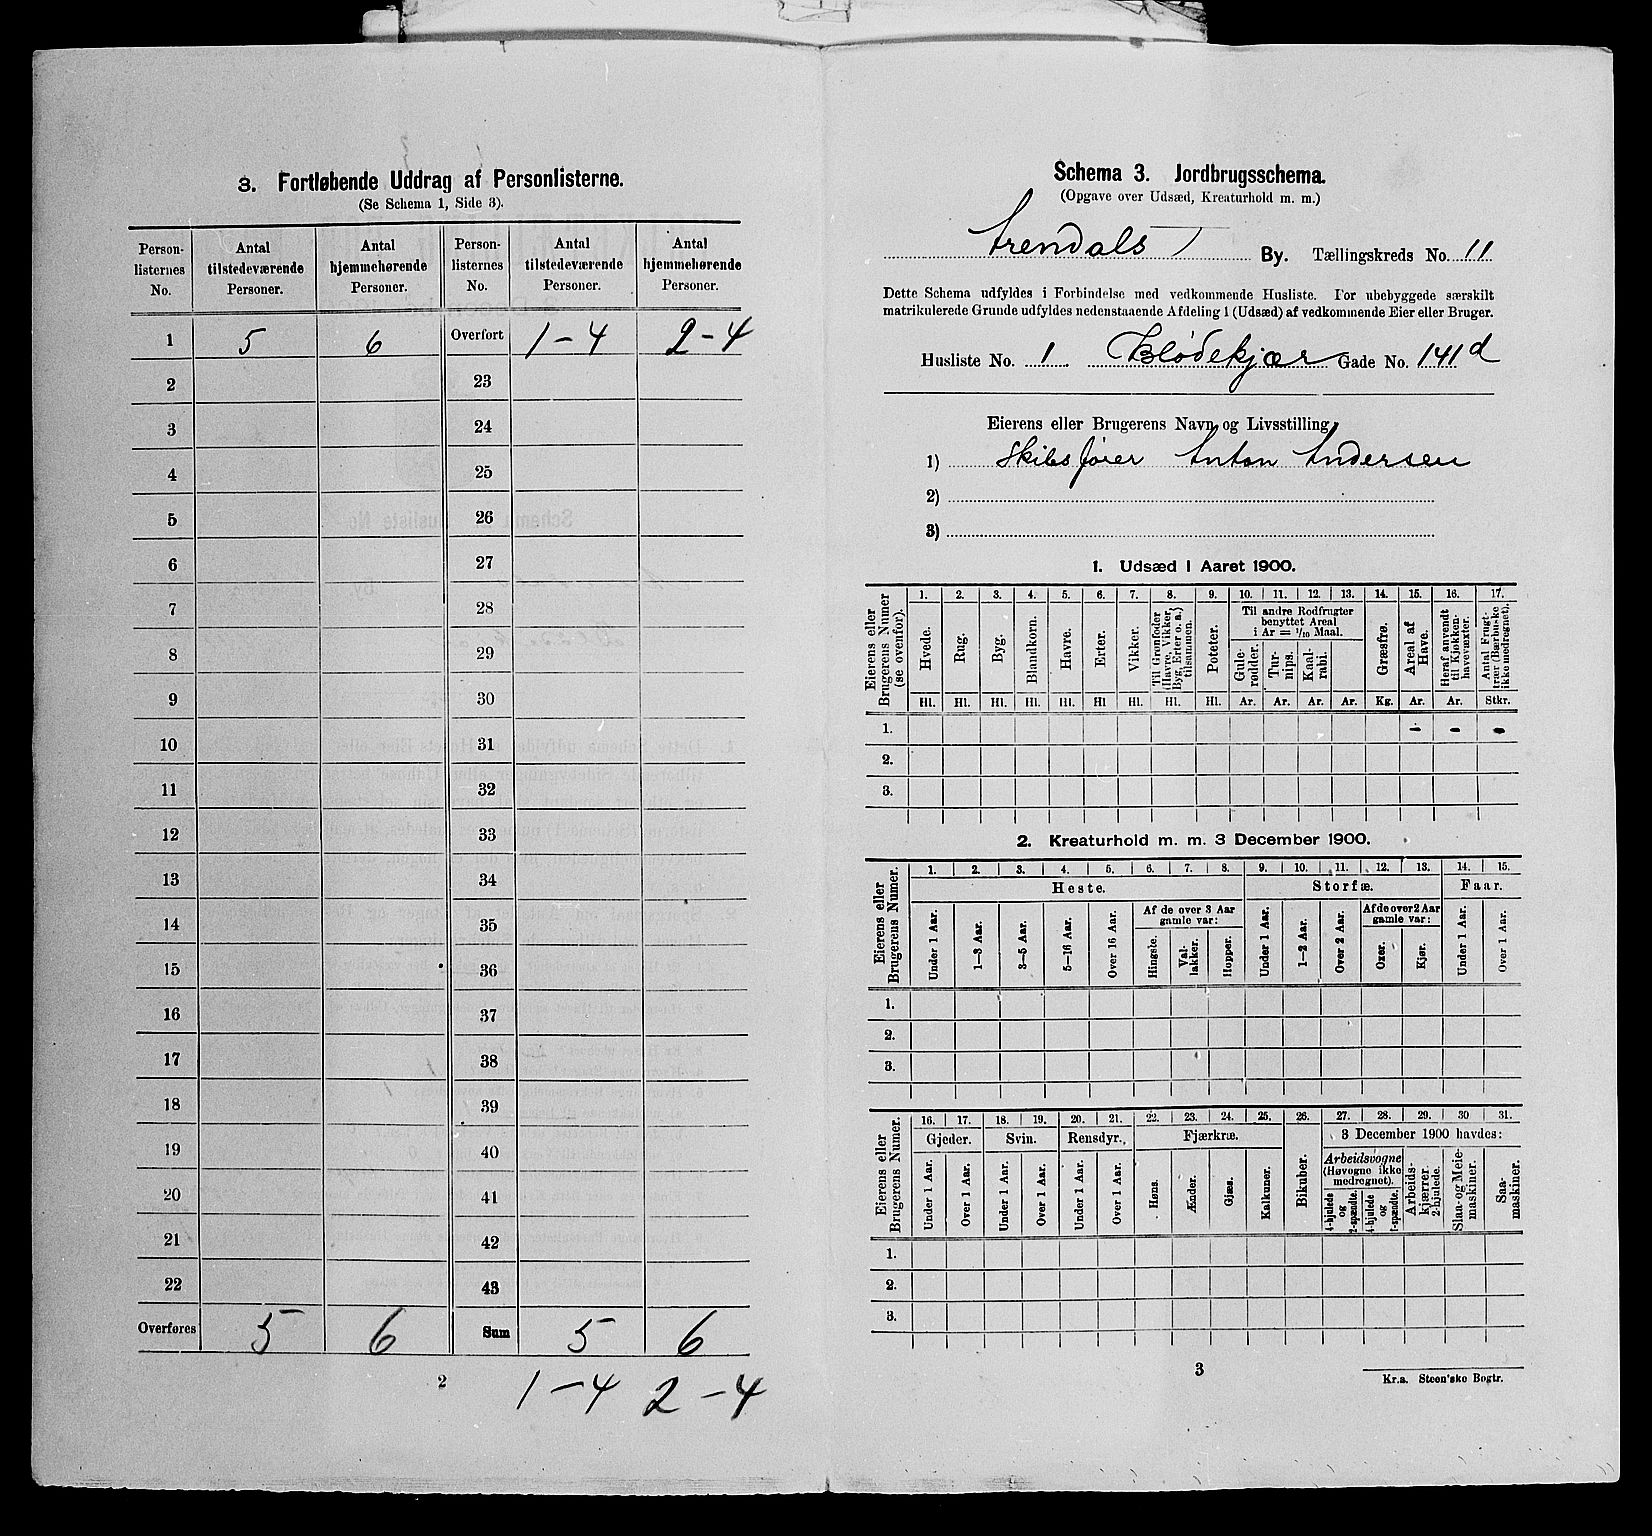 3. Fortløbende Uddrag af Personlisterne.
(Se Schema 1, Side 3).
Person-listernes No. | Antal tilstedeværende Personer. | Antal hjemmehørende Personer. | Person-listernes No. | Antal tilstedeværende Personer. | Antal hjemmehørende Personer.
1 | 5 | 6 | Overført | 1-4 | 2-4
2 | | | 23
3 | | | 24
4 | | | 25
5 | | | 26
6 | | | 27
7 | | | 28
8 | | | 29
9 | | | 30
10 | | | 31
11 | | | 32
12 | | | 33
13 | | | 34
14 | | | 35
15 | | | 36
16 | | | 37
17 | | | 38
18 | | | 39
19 | | | 40
20 | | | 41
21 | | | 42
22 | | | 43
Overføres | 5 | 6 | Sum | 5 | 6
2
1-4 2-4
Schema 3. Jordbrugsschema.
(Opgave over Udsæd, Kreaturhold m. m.)
Arendals By. Tællingskreds No. 11
Dette Schema udfyldes i Forbindelse med vedkommende Husliste. For ubebyggede særskilt
matrikulerede Grunde udfyldes nedenstaaende Afdeling 1 (Udsæd) af vedkommende Eier eller Bruger.
Husliste No. 1. Blødekjær Gade No. 141d
Eierens eller Brugerens Navn og Livsstilling
1) Skibsfører Anton Andersen
2)
3)
1. Udsæd i Aaret 1900.
Eierens eller Brugerens Numer (se ovenfor).
1. 2. 3. 4. 5. 6. 7. 8. 9. 10. 11. 12. 13. 14. 15. 16. 17.
Hvede. Rug. Byg. Blandkorn. Havre. Erter. Vikker. Til Grønfoder (Havre, Vikker, Byg, Erter o. a.) tilsammen. Poteter.
Til andre Rodfrugter benyttet Areal i Ar = 1/10 Maal.
Gulerødder. Turnips. Kaalrabi. Græsfrø. Areal af Have. Heraf anvendt til Kjøkkenhavevæxter. Antal Frugttrær (Bærbuske ikke medregnet).
Hl. Hl. Hl. Hl. Hl. Hl Hl. Hl. Hl. Ar. Ar. Ar. Ar. Kg. Ar. Ar. Stkr.
1. - - -
2.
3.
2. Kreaturhold m. m. 3 December 1900.
Eierens eller Brugerens Numer.
1. 2. 3. 4. 5. 6. 7. 8. 9. 10. 11. 12. 13. 14. 15.
Heste. Storfæ. Faar.
Under 1 Aar. 1-3 Aar. 3-5 Aar. 5-16 Aar. Over 16 Aar. Af de over 3 Aar gamle var: Hingste. Vallakker. Hopper. Under 1 Aar. 1-2 Aar. Over 2 Aar. Af de over 2 Aar gamle var: Oxer. Kjør. Under 1 Aar. Over 1 Aar.
1.
2.
3.
Eierens eller Brugerens Numer.
16. 17. 18. 19. 20. 21. 22. 23. 24. 25. 26. 27. 28. 29. 30 31.
Gjeder. Svin. Rensdyr. Fjærkræ. 3 December 1900 havdes:
Under 1 Aar. Over 1 Aar. Under 1 Aar. Over 1 Aar. Under 1 Aar. Over 1 Aar. Høns. Ænder. Gjæs. Kalkuner. Bikuber. Arbeidsvogne (Høvogne ikke medregnet). 4-hjulede og 2-spændte. 4-hjulede og 1-spændte. Arbeidskjærrer 2-hjulede. Slaa- og Meiemaskiner. Saamaskiner.
1.
2.
3.
3
Kr.a. Steen'ske Bogtr.